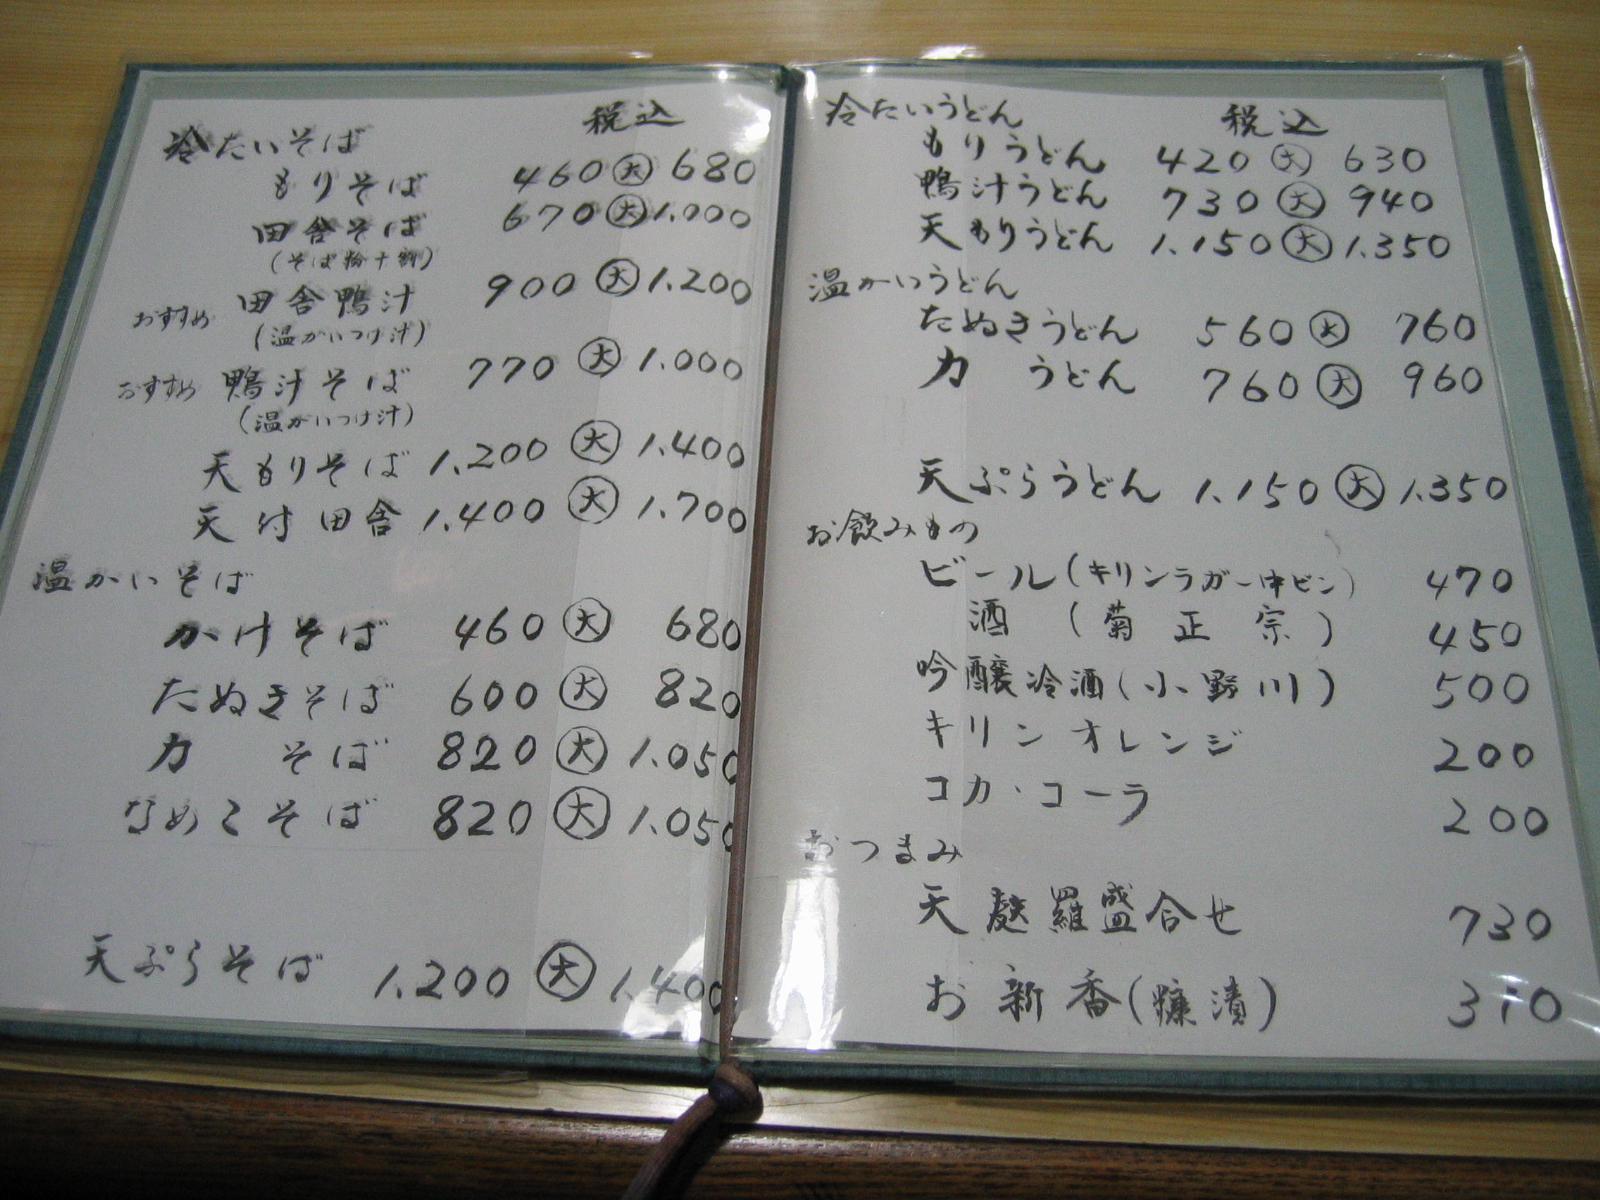 冷たいそば 税込
もりそば 460 大 680
田舎そば 670 大 1.000
(そば粉十割)
おすすめ 田舎鴨汁 900 大 1.200
(温かいつけ汁)
おすすめ 鴨汁そば 770 大 1.000
(温かいつけ汁)
天もりそば 1.200 大 1.400
天付田舎 1.400 大 1.700
温かいそば
かけそば 460 大 680
たぬきそば 600 大 820
力 そば 820 大 1.050
なめこそば 820 大 1.050
天ぷらそば 1.200 大 1.400
冷たいうどん 税込
もりうどん 420 大 630
鴨汁うどん 730 大 940
天もりうどん 1.150 大 1.350
温かいうどん
たぬきうどん 560 大 760
力 うどん 760 大 960
天ぷらうどん 1.150 大 1.350
お飲みもの
ビール(キリンラガー中ビン) 470
酒 (菊正宗) 450
吟醸冷酒(小野川) 500
キリンオレンジ 200
コカ・コーラ 200
おつまみ
天麩羅盛合せ 730
お新香(糠漬) 310